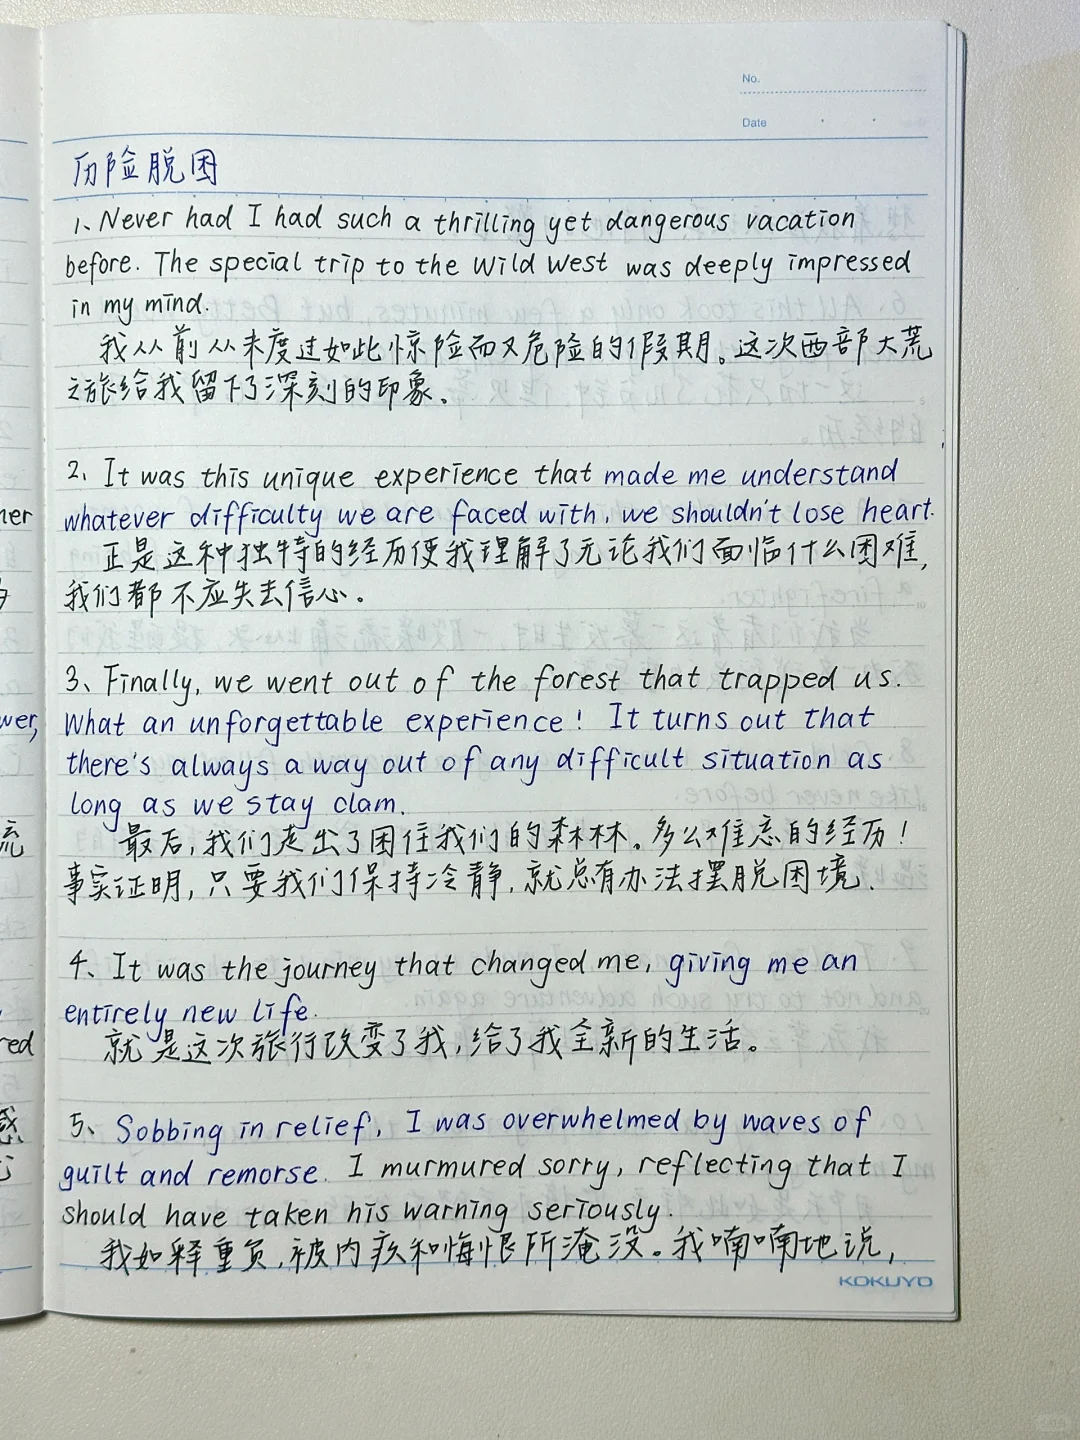 No.
Date
历险脱困
1、Never had I had such a thrilling yet dangerous vacation
before. The special trip to the Wild West was deeply impressed
in my mind.
我从前从未度过如此惊险而又危险的假期。这次西部大荒
之旅给我留下了深刻的印象。
2、It was this unique experience that made me understand
whatever difficulty we are faced with, we shouldn't lose heart.
正是这种独特的经历使我理解了无论我们面临什么困难,
我们都不应失去信心。
3、Finally, we went out of the forest that trapped us.
What an unforgettable experience! It turns out that
there's always a way out of any difficult situation as
long as we stay clam.
最后,我们走出了困住我们的森林。多么难忘的经历!
事实证明,只要我们保持冷静,就总有办法摆脱困境.
4、It was the journey that changed me, giving me an
entirely new life.
就是这次旅行改变了我,给了我全新的生活。
5、Sobbing in relief, I was overwhelmed by waves of
guilt and remorse. I murmured sorry, reflecting that I
should have taken his warning seriously.
我如释重负,被内疚和悔恨所淹没。我喃喃地说,
KOKUYO
ner
wer,
流
red
感